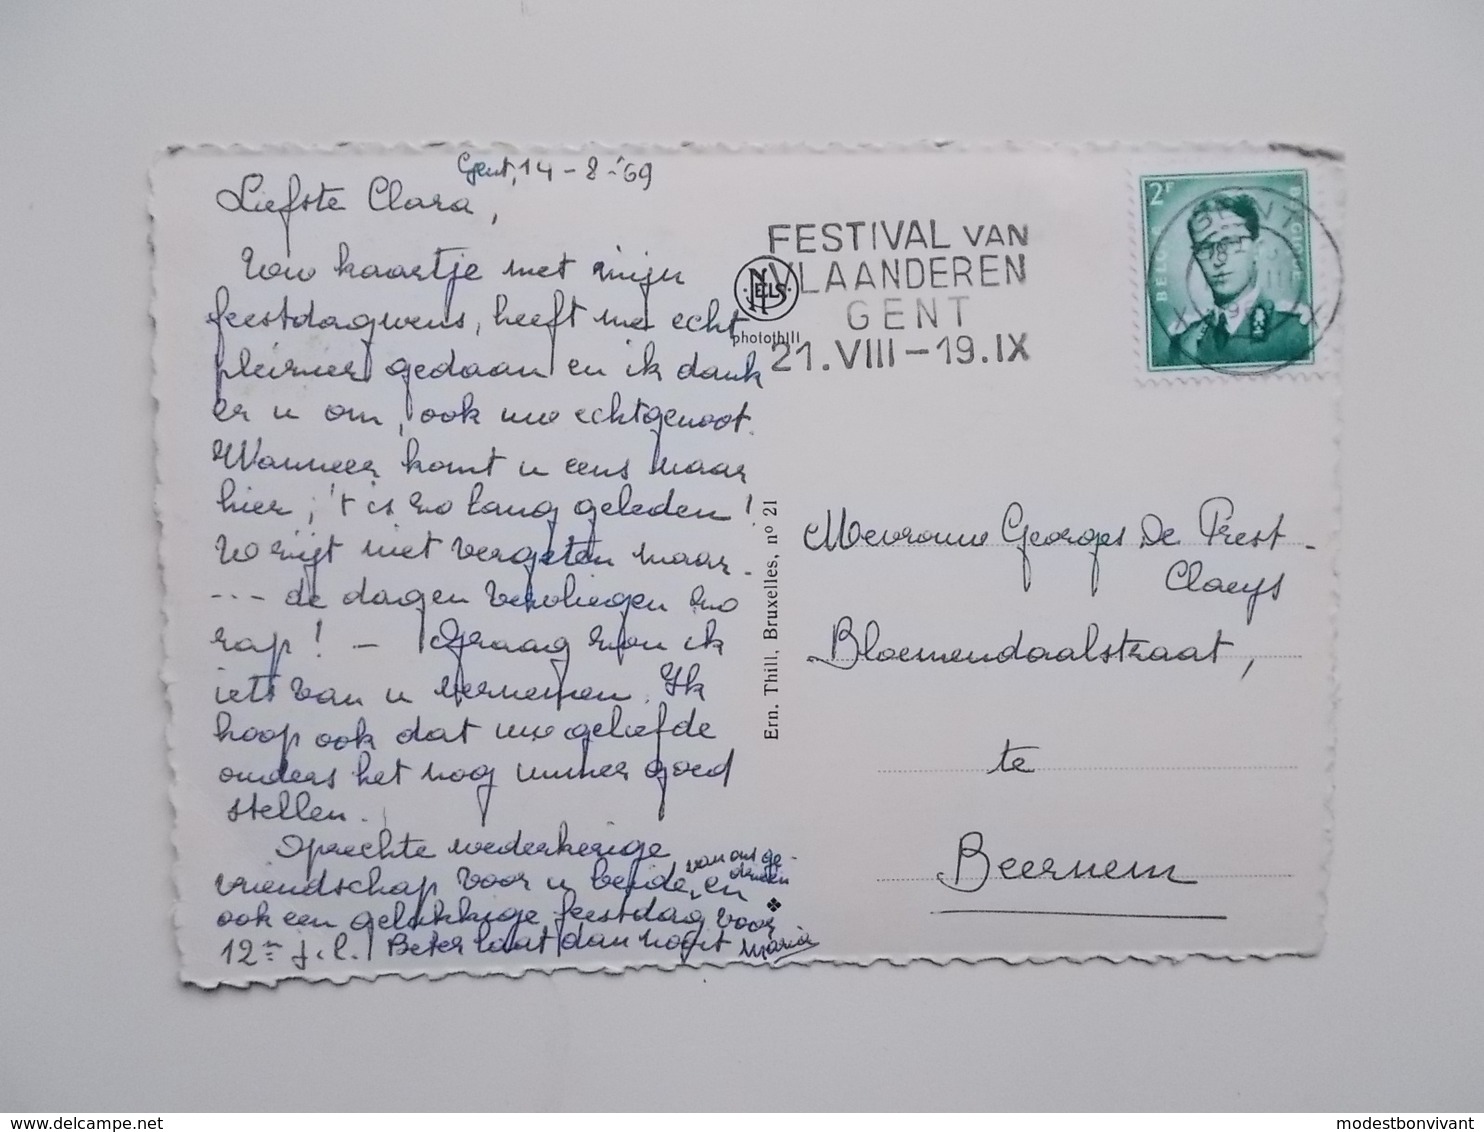 Gent, 14-8-'69
Liefste Clara,
Uw kaartje met mijn
feestdagwens, heeft me echt
plezier gedaan en ik dank
er u om, ook uw echtgenoot.
Wanneer komt u eens naar
hier, 't is zo lang geleden!
U zijt niet vergeten maar
--- de dagen vervliegen zo
rap! - Graag zou ik
iets van u vernemen. Ik
hoop ook dat uw geliefde
ouders het nog immer goed
stellen.
Oprechte wederkerige
vriendschap voor u beide, en
van ons ge-
drieën
ook een gelukkige feestdag voor
12en j.l. Beter laat dan nooit
Maria
NELS
photothill
Ern. Thill, Bruxelles, nº 21
FESTIVAL VAN
VLAANDEREN
GENT
21.VIII-19.IX
2F
GENT
Mevrouw Georges De Prest-
Claeys
Bloemendaalstraat,
te
Beernem
delcampe.net
modestbonvivant